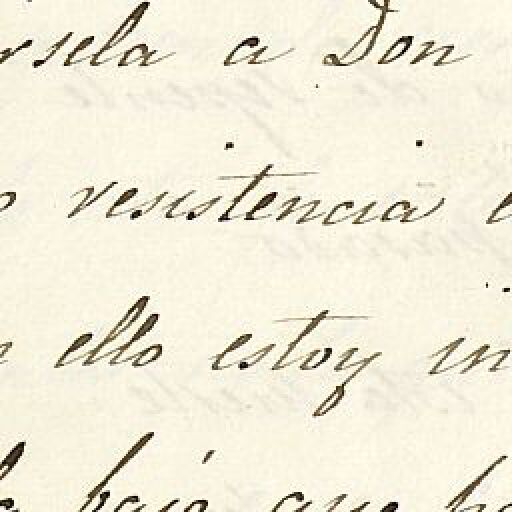 rsela a Don
o resistencia e
n ello estoy in
la bajó que ha